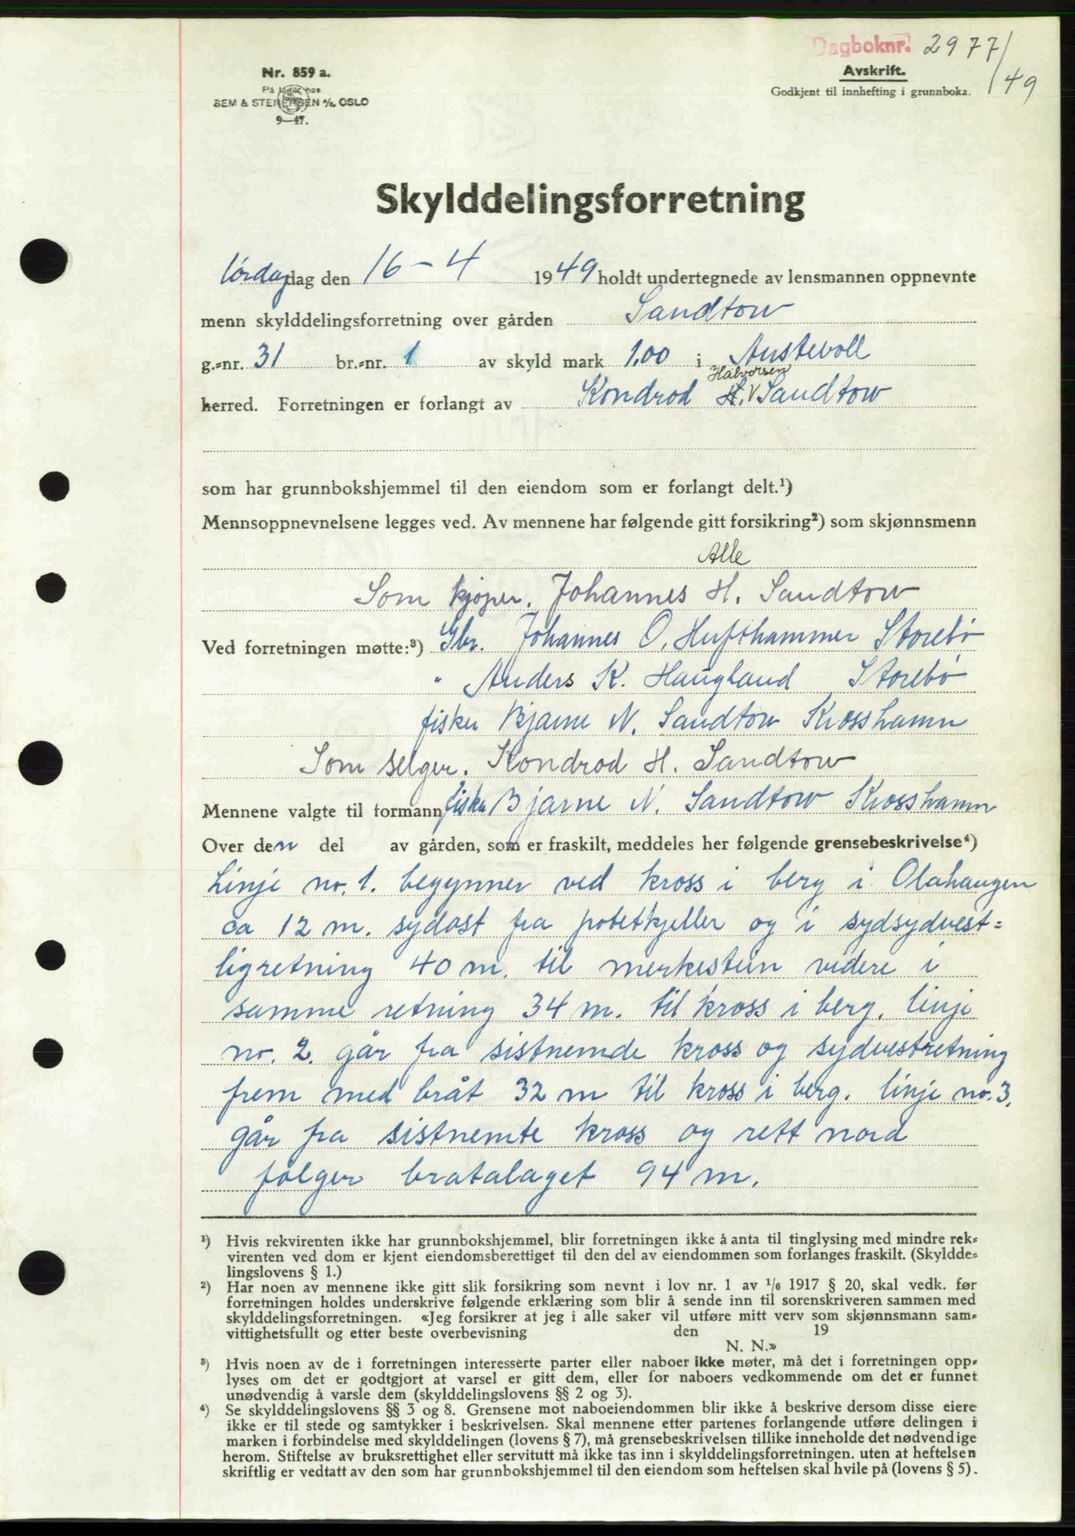 Dagboknr. 2977/49
Nr. 859 a.
På lager hos
SEM & STENERSEN A/S, OSLO
9—47.
Avskrift.
Godkjent til innhefting i grunnboka.
Skylddelingsforretning
lørdag dag den 16 – 4 1949 holdt undertegnede av lensmannen oppnevnte
menn skylddelingsforretning over gården Sandtow
g.=nr. 31 br.=nr. 1 av skyld mark 1.00 i Austevoll
Halvorsen
herred. Forretningen er forlangt av Kondrod H. V Sandtow
som har grunnbokshjemmel til den eiendom som er forlangt delt.¹)
Mennsoppnevnelsene legges ved. Av mennene har følgende gitt forsikring²) som skjønnsmenn
Alle
Som kjøper. Johannes H. Sandtow
Ved forretningen møtte:³) Gbr. Johannes O. Hufthammer Storebø
" Anders K. Haugland Storebø
fisker Bjarne N. Sandtow Krosshamn
Som selger. Kondrod H. Sandtow
Mennene valgte til formann fisker Bjarne N. Sandtow Krosshamn
Over den del av gården, som er fraskilt, meddeles her følgende grensebeskrivelse⁴)
Linje no. 1. begynner ved kross i berg i Olahaugen
ca 12 m. sydøst fra potetkjeller og i sydsydvest=
lig retning 40 m. til merkestein videre i
samme retning 34 m. til kross i berg. linje
no. 2. går fra sistnemde kross og sydvestretning
frem med bråt 32 m til kross i berg. linje no. 3.
går fra sistnemte kross og rett nord
følger bratalaget 94 m.
¹) Hvis rekvirenten ikke har grunnbokshjemmel, blir forretningen ikke å anta til tinglysing med mindre rek=
virenten ved dom er kjent eiendomsberettiget til den del av eiendommen som forlanges fraskilt. (Skyldde=
lingslovens § 1.)
²) Har noen av mennene ikke gitt slik forsikring som nevnt i lov nr. 1 av ¹/₆ 1917 § 20, skal vedk. før
forretningen holdes underskrive følgende erklæring som blir å sende inn til sorenskriveren sammen med
skylddelingsforretningen. «Jeg forsikrer at jeg i alle saker vil utføre mitt verv som skjønnsmann sam=
vittighetsfullt og etter beste overbevisning den 19
N. N.»
³) Hvis noen av de i forretningen interesserte parter eller naboer ikke møter, må det i forretningen opp=
lyses om det er godtgjort at varsel er gitt dem, eller for naboers vedkommende om det er funnet
unødvendig å varsle dem (skylddelingslovens §§ 2 og 3).
⁴) Se skylddelingslovens §§ 3 og 8. Grensene mot naboeiendommen blir ikke å beskrive dersom disse eiere
ikke er til stede og samtykker i beskrivelsen. Skal mennene etter partenes forlangende utføre delingen i
marken i forbindelse med skylddelingen (lovens § 7), må grensebeskrivelsen tillike inneholde det nødvendige
herom. Stiftelse av bruksrettighet eller servitutt må ikke tas inn i skylddelingsforretningen. uten at heftelsen
skriftlig er vedtatt av den som har grunnbokshjemmel til den eiendom som heftelsen skal hvile på (lovens § 5).